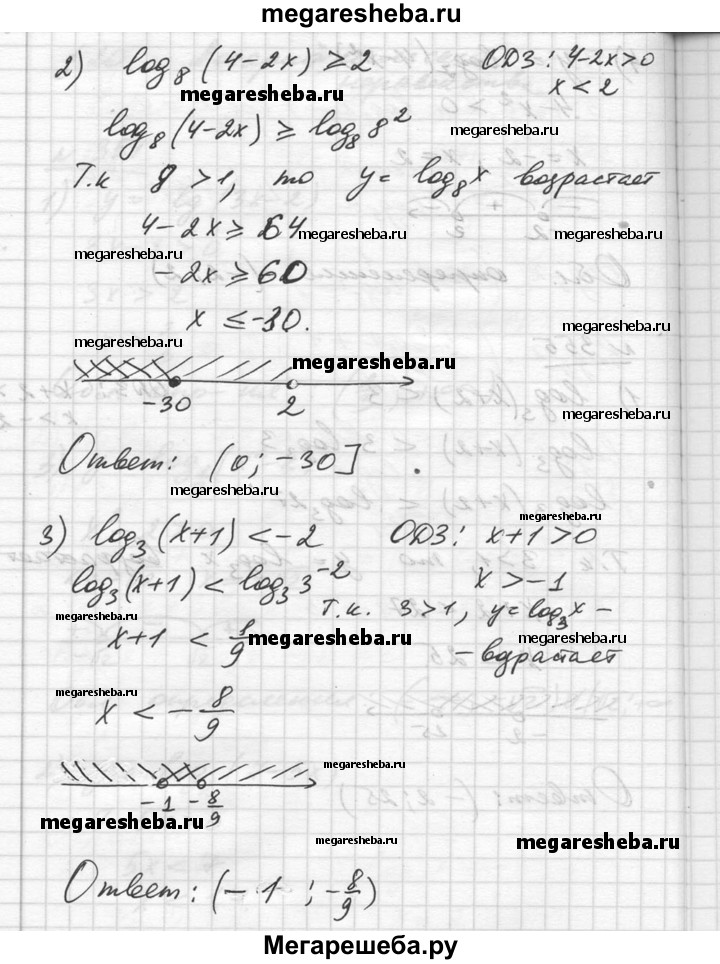 megaresheba.ru
2) log₈(4-2x) ≥ 2 ОДЗ: 4-2x>0
x < 2
megaresheba.ru
log₈(4-2x) ≥ log₈ 8² megaresheba.ru
Т.к 8 >1, то y= log₈x возрастает
4-2x ≥ 64
megaresheba.ru megaresheba.ru megaresheba.ru
-2x ≥ 60
x ≤ -30.
megaresheba.ru
megaresheba.ru
megaresheba.ru
-30 2
megaresheba.ru
Ответ: (0; -30]
megaresheba.ru
3) log₃(x+1) < -2 ОДЗ: x+1>0
megaresheba.ru
log₃(x+1) < log₃ 3⁻² x > -1
т.к. 3>1, y=log₃x -
megaresheba.ru
x+1 < 1/9 megaresheba.ru megaresheba.ru
- возрастает
megaresheba.ru
x < -8/9
megaresheba.ru
megaresheba.ru
-1 -8/9
megaresheba.ru megaresheba.ru megaresheba.ru
Ответ: (-1 ; -8/9)
Мегарешеба.ру